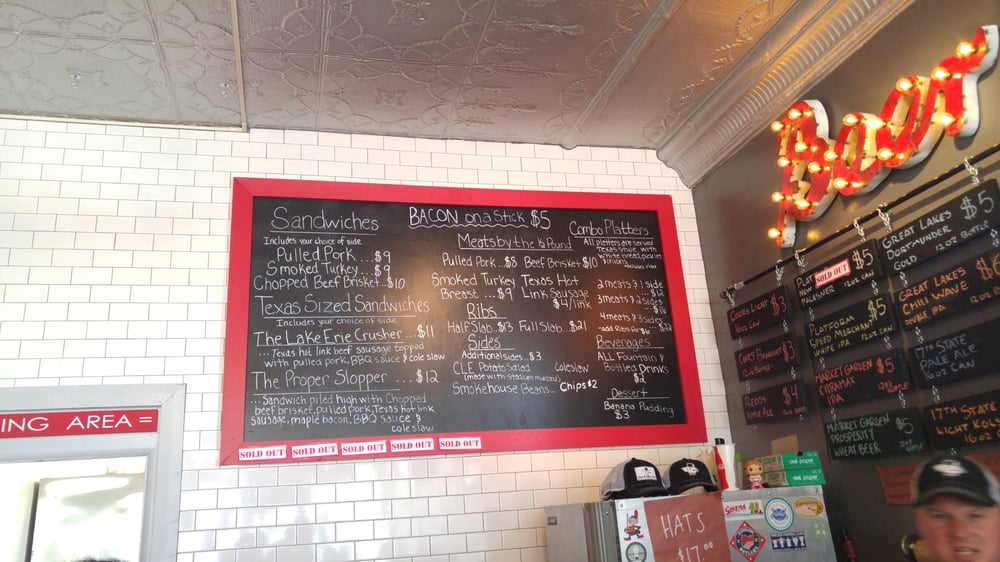 Sandwiches
Includes your choice of side
Pulled Pork ... $9
Smoked Turkey ... $9
Chopped Beef Brisket .. $10
Texas Sized Sandwiches
Includes your choice of side
The Lake Erie Crusher ... $11
... Texas hot link beef sausage topped
with pulled pork, BBQ sauce & coleslaw
The Proper Slopper .... $12
... Sandwich piled high with Chopped
beef brisket, pulled pork, Texas hot link
sausage, maple bacon, BBQ sauce &
coleslaw
BACON on a Stick $5
Meats by the ½ Pound
Pulled Pork .. $8 Beef Brisket $10
Smoked Turkey
Breast ... $9
Texas Hot
Link Sausage
$4/link
Ribs
Half Slab . $13 Full Slab . $21
Sides
Additional sides .. $3
CLE Potato Salad
(made with stadium mustard)
coleslaw
Smokehouse Beans ..
Chips $2
Combo Platters
All platters are served
Texas Style with
White bread, pickles
& onions
2 meats & 1 side
$12
3 meats & 2 sides
$16
4 meats & 3 sides
Beverages
ALL Fountain &
Bottled Drinks
$2
Dessert
Banana Pudding
$3
SOLD OUT
SOLD OUT
SOLD OUT
SOLD OUT
SOLD OUT
ING AREA =
Beer
Coors Light $3
16oz Can
Coors Banquet $3
12oz Bottle
Redds $4
Apple Ale
SOLD OUT
$5
PILSNER
12oz Can
Platform $5
Speed Merchant
White IPA
12oz Can
Market Garden $5
Citramax
IPA
12oz Bottle
Market Garden $5
Prosperity
Wheat Beer
Great Lakes $5
Dortmunder
Gold
12oz Bottle
Great Lakes $6
Chill Wave
Double IPA
17th State
Pale Ale
12oz Can
17th State
Light Kolsch
HATS
$17.00